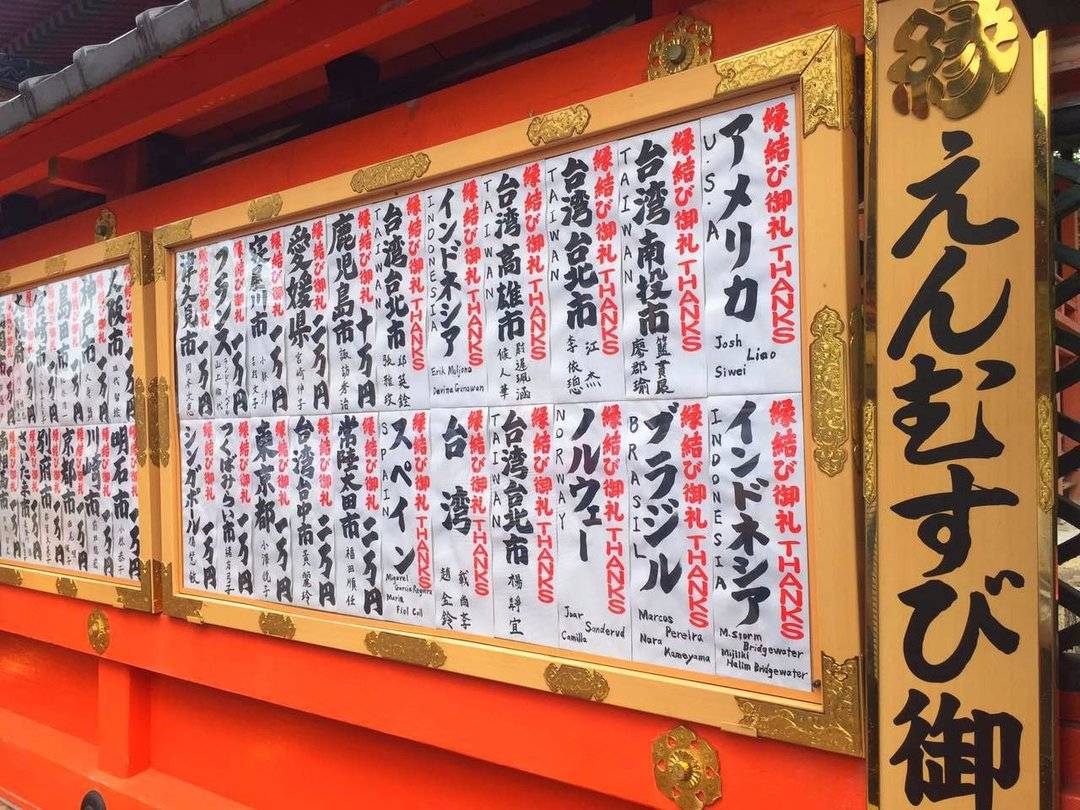 縁
えんむすび御
縁結び御礼 THANKS
アメリカ
U.S.A
Josh Liao
Siwei
縁結び御礼 THANKS
台湾南投市
TAIWAN
廖郡瑜
縁結び御礼 THANKS
台湾台北市
TAIWAN
江杰
李依璁
縁結び御礼 THANKS
台湾高雄市
TAIWAN
侯人華
縁結び御礼 THANKS
インドネシア
INDONESIA
Erik Muljona
Davina Gunawan
縁結び御礼 THANKS
台湾台北市
TAIWAN
縁結び御礼
鹿児島市 十万円
諏訪秀治
縁結び御礼
愛媛県 二万円
宮崎伸子
縁結び御礼
寝屋川市 一万円
縁結び御礼
フランス 一万円
縁結び御礼
津久見市 一万円
岡本文也
縁結び御礼 THANKS
インドネシア
INDONESIA
M.Storm
Bridgewater
Mijiliki
Halim Bridgewater
縁結び御礼 THANKS
ブラジル
BRASIL
Marcos
Pereira
Nara
Kameyama
縁結び御礼 THANKS
ノルウェー
NORWAY
Joar
Sanderud
Camilla
縁結び御礼 THANKS
台湾台北市
TAIWAN
楊靜宜
縁結び御礼 THANKS
台湾
趙金鈴
縁結び御礼 THANKS
スペイン
SPAIN
Miguel
Maria
Fiol Coll
縁結び御礼
常陸太田市 二万円
福田順任
縁結び御礼
台湾台中市 二万円
黃麗玲
縁結び御礼
東京都 一万円
縁結び御礼
つくばみらい市 一万円
縁結び御礼
シンガポール 一万円
縁結び御礼
大阪市 一万円
神戸市 一万円
島田市 一万円
明石市 一万円
川崎市 一万円
京都市 一万円
別府市 一万円
さいたま市 一万円